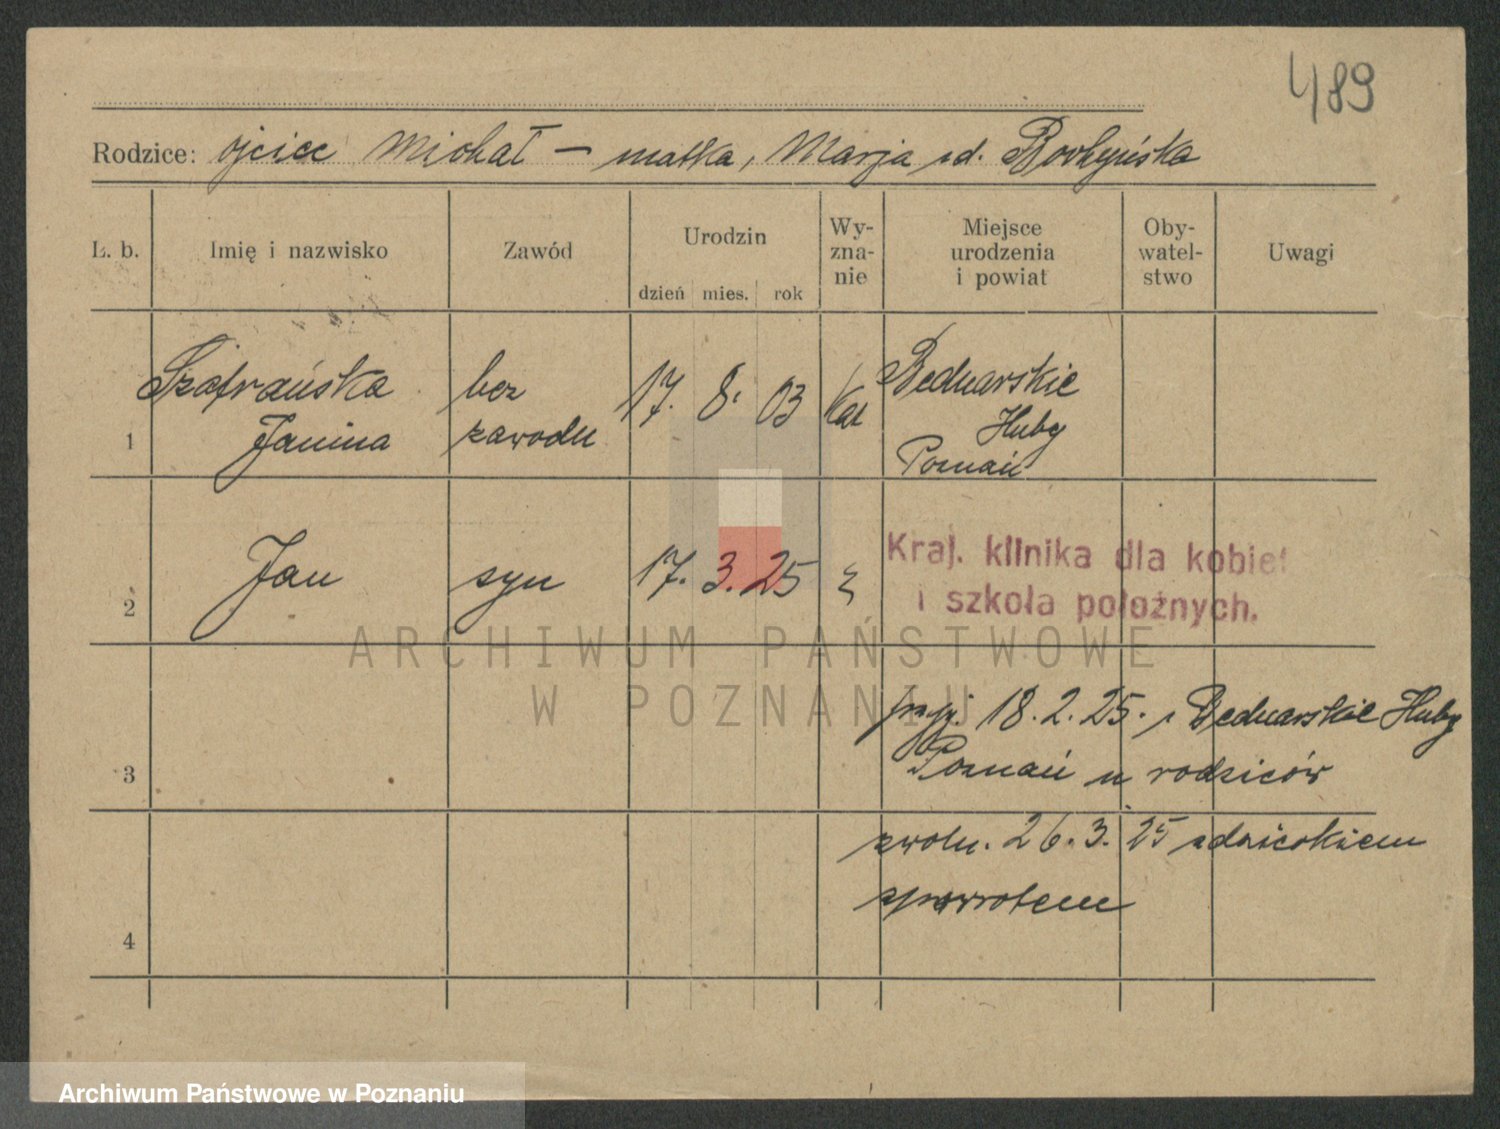 489
Rodzice: ojciec Michał – matka, Marja zd.
L. b. Imię i nazwisko Zawód Urodzin dzień mies. rok Wy-zna-nie Miejsce urodzenia i powiat Oby-watel-stwo Uwagi
Szafrańska bez 17. 8. 03 Kat Bednarskie
1 Janina zawodu Huby
Poznań
Kraj. klinika dla kobiet
2 Jan syn 17. 3. 25
i szkoła położnych.
ARCHIWUM PAŃSTWOWE
W POZNANIU
przyj. 18. 2. 25. z Bednarskie Huby
3 Poznań u rodziców
zwoln. 26. 3. 25 z dzieckiem
spowrotem
4
Archiwum Państwowe w Poznaniu